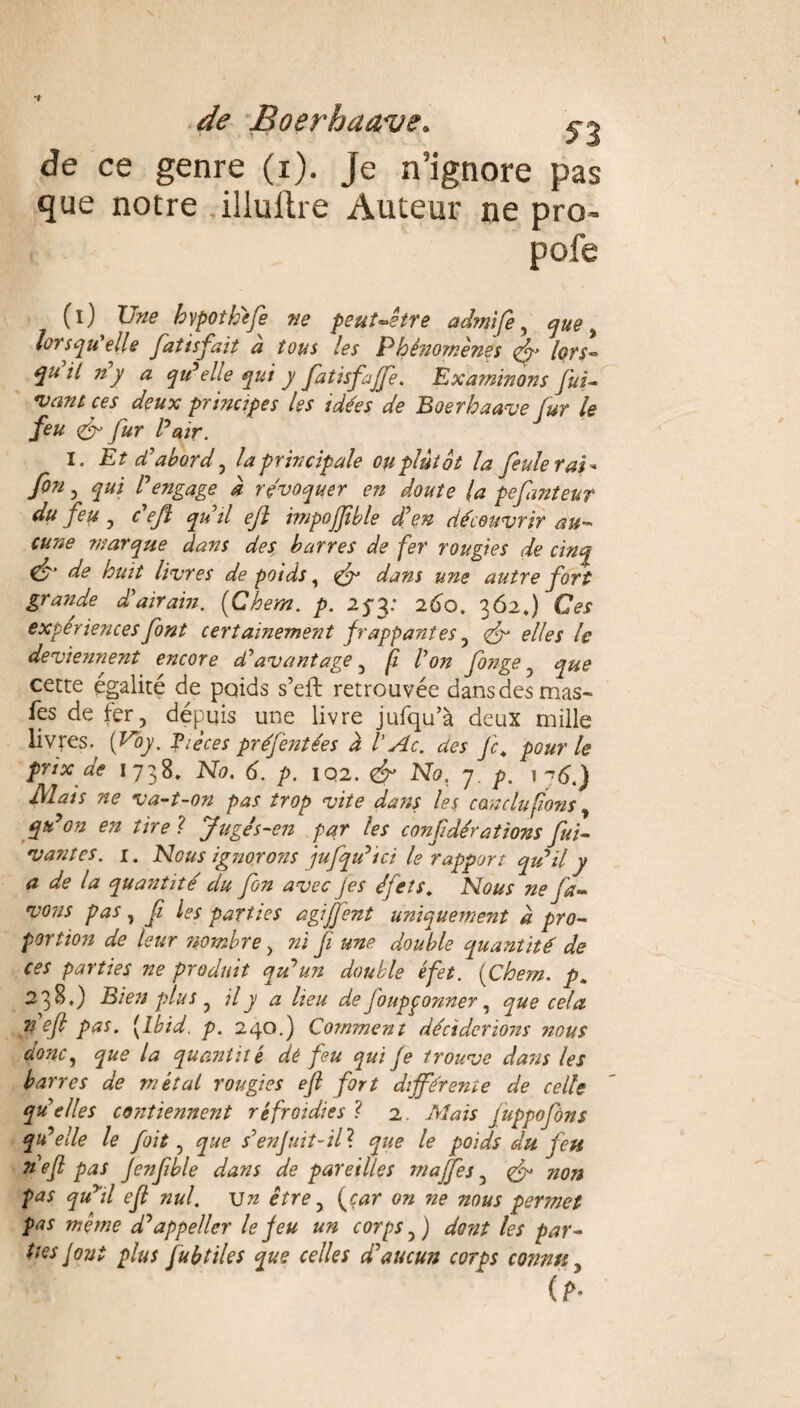 de Boerhaave. 53
de ce genre (1). Je n'ignore pas
que notre illuſtre Auteur ne pro-
poſe
(1) Une hypothèſe ne peut-être admiſe, que,
lorsqu'elle ſatisfait à tous les Phénomènes & lors-
qu'il n'y a qu'elle qui y ſatisfaſſe. Examinons ſui-
vant ces deux principes les idées de Boerhaave ſur le
feu & ſur l'air.
1. Et d'abord, la principale ou plûtôt la ſeule rai-
ſon, qui l'engage à révoquer en doute la peſanteur
du feu, c'eſt qu'il eſt impoſſible d'en découvrir au-
cune marque dans des barres de fer rougies de cinq
& de huit livres de poids, & dans une autre fort
grande d'airain. (Chem. p. 253: 260. 362.) Ces
expériences ſont certainement frappantes, & elles le
deviennent encore d'avantage, ſi l'on ſonge, que
cette égalité de poids s'eſt retrouvée dans des mas-
ſes de fer, dépuis une livre juſqu'à deux mille
livres. (Voy. Pièces préſentées à l'Ac. des ſc. pour le
prix de 1738. No. 6. p. 102. & No. 7. p. 176.)
Mais ne va-t-on pas trop vite dans les concluſions,
qu'on en tire? Jugés-en par les conſidérations ſui-
vantes. 1. Nous ignorons juſqu'ici le rapport qu'il y
a de la quantité du ſon avec ſes éfets. Nous ne ſa-
vons pas, ſi les parties agiſſent uniquement à pro-
portion de leur nombre, ni ſi une double quantité de
ces parties ne produit qu'un double éfet. (Chem. p.
238.) Bien plus, il y a lieu de ſoupçonner, que cela
n'eſt pas. (Ibid. p. 240.) Comment déciderions nous
donc, que la quantité de feu qui ſe trouve dans les
barres de métal rougies eſt fort différente de celle
qu'elles contiennent réfroidies? 2. Mais ſuppoſons
qu'elle le ſoit, que s'enſuit-il? que le poids du feu
n'eſt pas ſenſible dans de pareilles maſſes, & non
pas qu'il eſt nul. Un être, (car on ne nous permet
pas même d'appeller le feu un corps,) dont les par-
ties ſont plus ſubtiles que celles d'aucun corps connu,
(p.